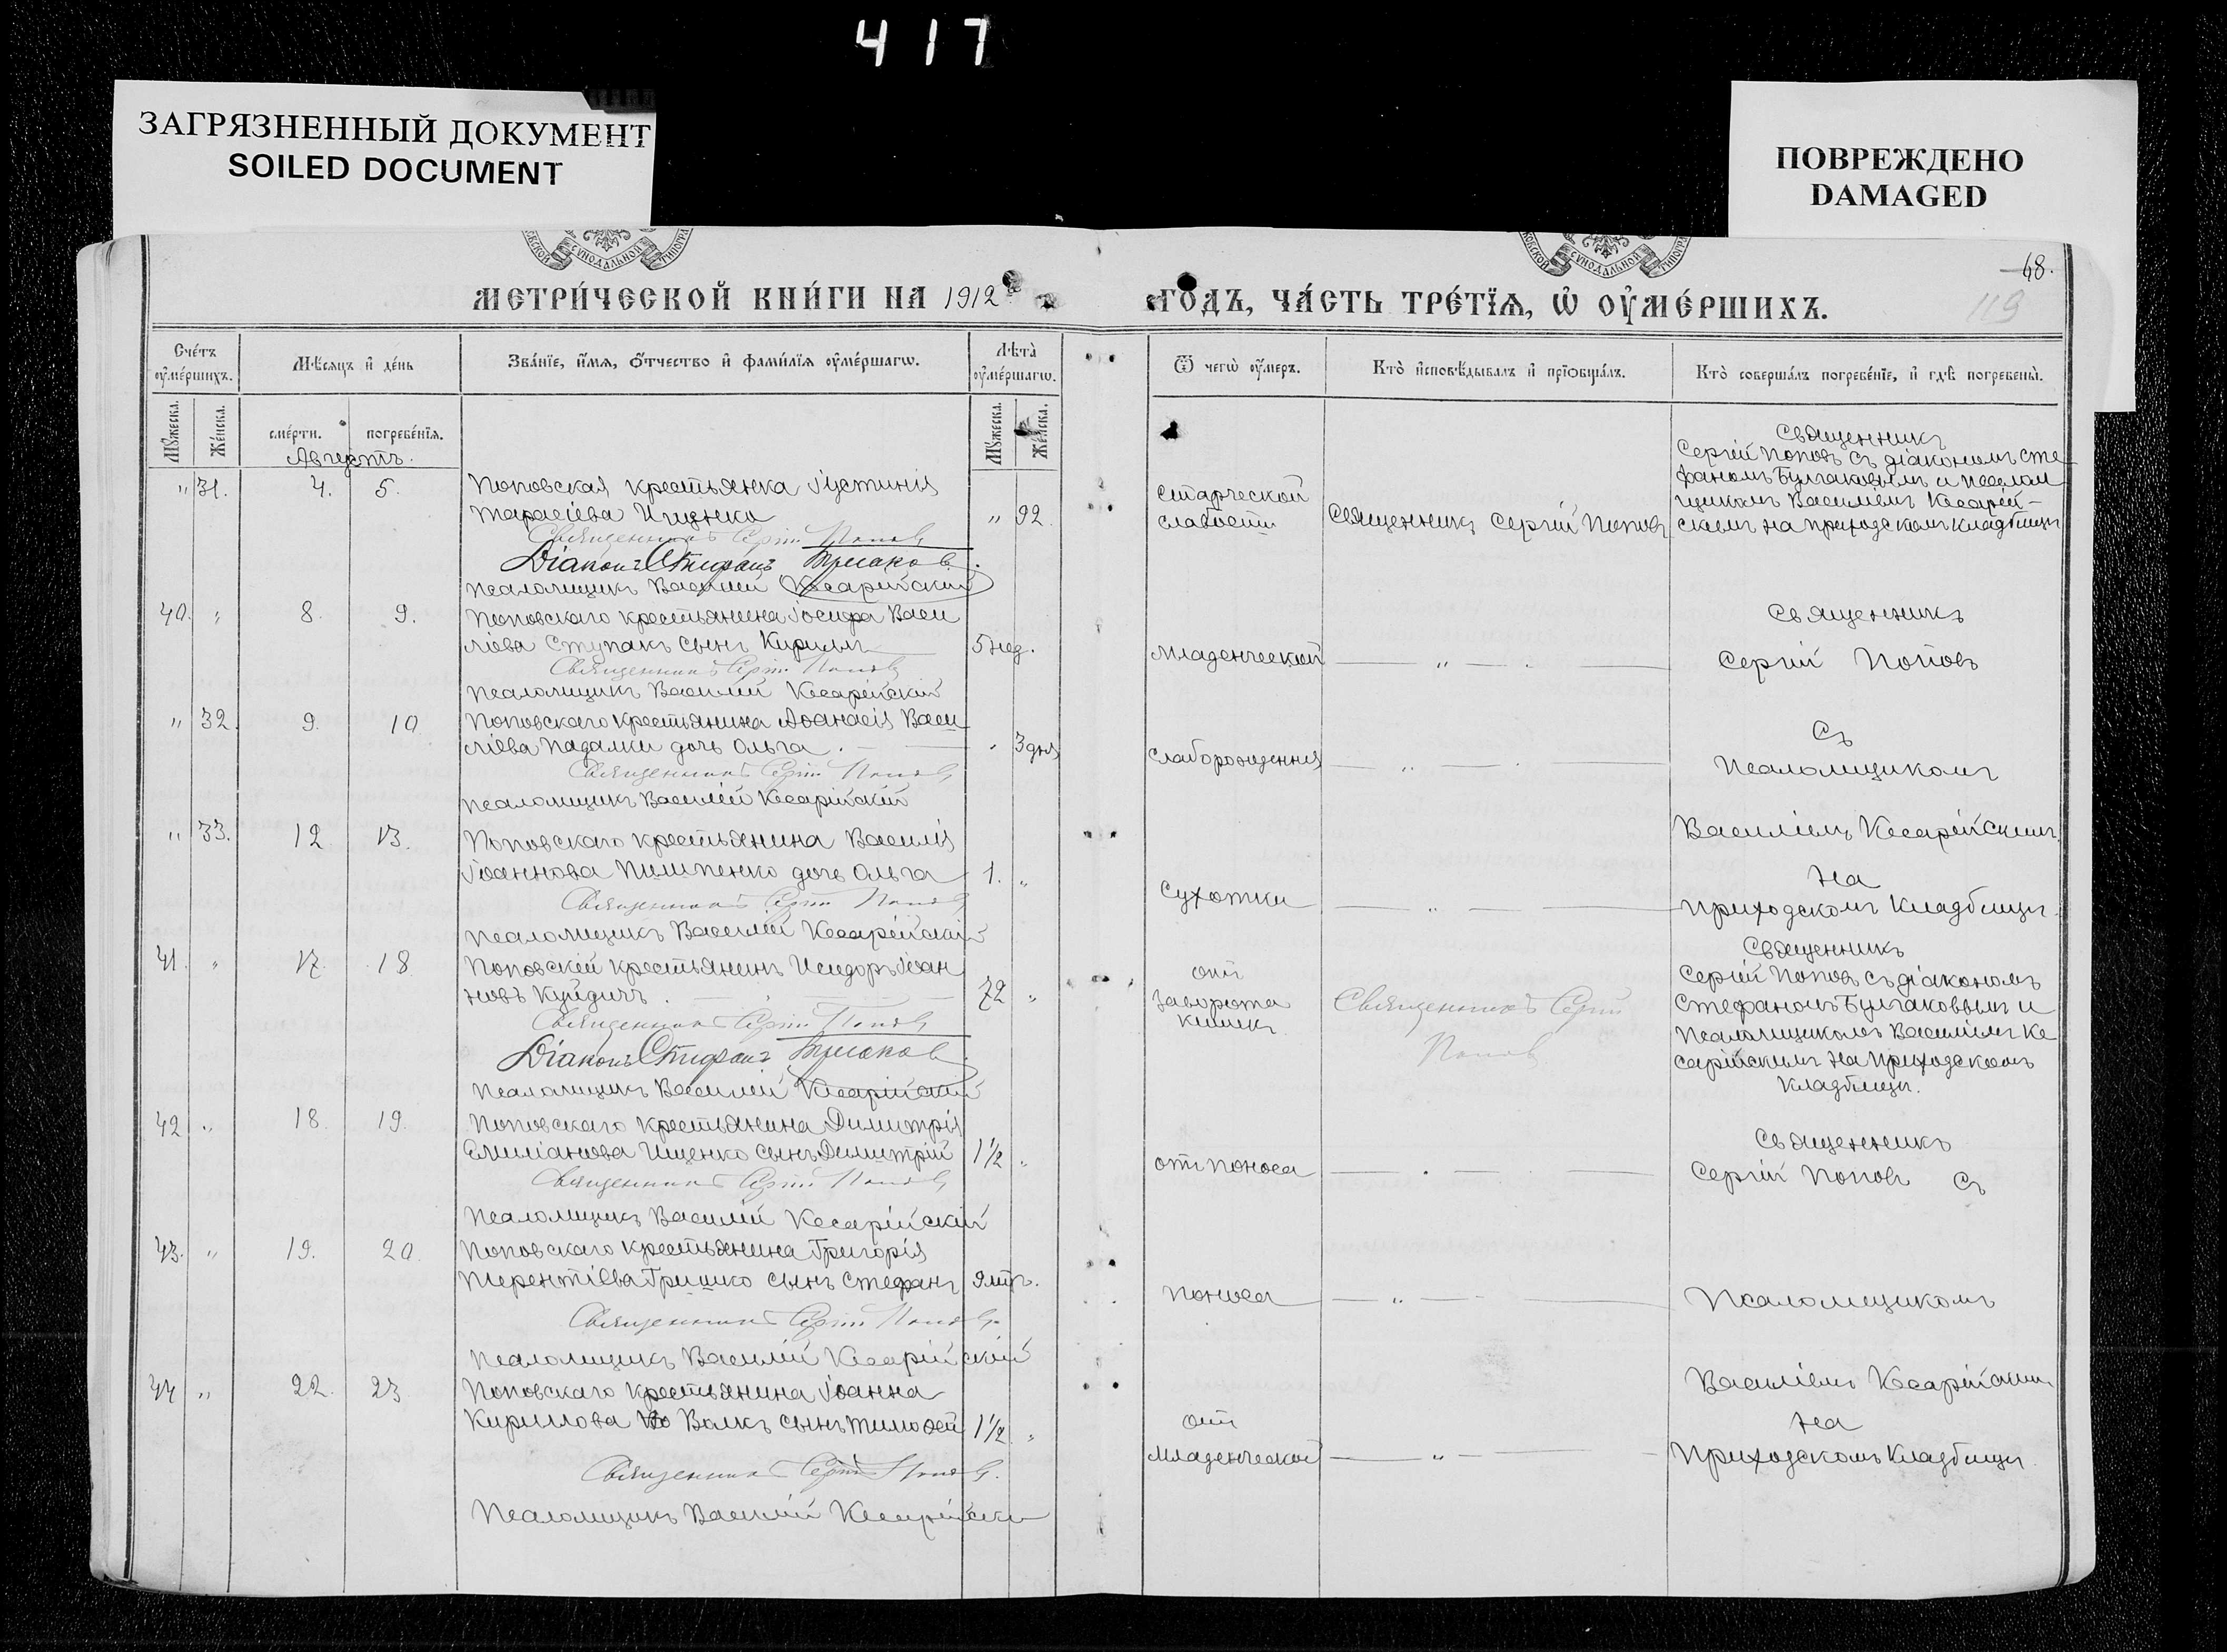 417
ЗАГРЯЗНЕННЫЙ ДОКУМЕНТ
SOILED DOCUMENT
ПОВРЕЖДЕНО
DAMAGED
СѴНОДАЛЬНОЙ
СѴНОДАЛЬНОЙ
68.
119
МЕТРИ́ЧЕСКОЙ КНИ́ГИ НА 1912
ГОДЪ, ЧА́СТЬ ТРЕ́ТЇѦ, Ѡ҆ ОУ҆МЕ́РШИХЪ.
Сче́тъ оу҆ме́ршихъ.
Мѣ́сяцъ и҆ де́нь
Зва́нїе, и҆́мѧ, ѻ҆́тчество и҆ фами́лїѧ оу҆ме́ршагѡ.
Лѣ́та̀ оу҆ме́ршагѡ.
Ѿ чегѡ̀ оу҆́меръ.
Кто̀ и҆сповѣ́дывалъ и҆ прїѡбща́лъ.
Кто̀ соверша́лъ погребе́нїе, и҆ гдѣ̀ погребены̀.
Мꙋ́жеска.
Же́нска.
сме́рти.
погребе́нїѧ.
Мꙋ́жеска.
Же́нска.
Августъ.
" 31. 4. 5. Поповская крестьянка Іустинія
Тарасіева Ищенко " 92
Священникъ Сергій Поповъ
Діаконъ Стефанъ Булгаковъ.
Псаломщикъ Василій Кесарійскій
Старческой
слабости
Священникъ Сергій Поповъ
Священникъ
Сергій Поповъ съ діакономъ Сте-
фаномъ Булгаковымъ и псалом
щикомъ Василіемъ Кесарій-
скимъ на приходскомъ кладбищѣ
40. " 8. 9. Поповскаго крестьянина Іосифа Васи
ліева Ступакъ сынъ Кириллъ 5 нед.
Священникъ Сергій Поповъ
Псаломщикъ Василій Кесарійскій
Младенческой
"
Священникъ
Сергій Поповъ
" 32. 9. 10 Поповскаго крестьянина Аѳанасія Васи
ліева Падалки дочь Ольга. " 3 дня
Священникъ Сергій Поповъ
Псаломщикъ Василій Кесарійскій
Слаборожденія
"
Съ
Псаломщикомъ
" 33. 12. 13. Поповскаго крестьянина Василія
Іоаннова Пилипенко дочь Ольга 1. "
Священникъ Сергій Поповъ
Псаломщикъ Василій Кесарійскій
Сухотки
"
Василіемъ Кесарійскимъ
на
приходскомъ кладбищѣ.
41. " 17. 18. Поповскій крестьянинъ Исидоръ Іоан
новъ Куйдичъ. 72 "
Священникъ Сергій Поповъ
Діаконъ Стефанъ Булгаковъ.
Псаломщикъ Василій Кесарійскій
отъ
заворота
кишекъ
Священникъ Сергій
Поповъ
Священникъ
Сергій Поповъ съ діакономъ
Стефаномъ Булгаковымъ и
Псаломщикомъ Василіемъ Ке
сарійскимъ на приходскомъ
кладбищѣ.
42 " 18. 19. Поповскаго крестьянина Димитрія
Емиліанова Ищенко сынъ Димитрій 1½ "
Священникъ Сергій Поповъ
Псаломщикъ Василій Кесарійскій
отъ поноса
Священникъ
Сергій Поповъ съ
43. " 19. 20. Поповскаго крестьянина Григорія
Терентіева Гришко сынъ Стефанъ
Священникъ Сергій Поповъ.
Псаломщикъ Василій Кесарійскій
поноса
"
Псаломщикомъ
44 " 22. 23 Поповскаго крестьянина Іоанна
Кириллова Волкъ сынъ Тимоѳей 1½ "
Священникъ Сергій Поповъ.
Псаломщикъ Василій Кесарійскій
отъ
Младенческой
"
Василіемъ Кесарійскимъ
на
Приходскомъ кладбищѣ.